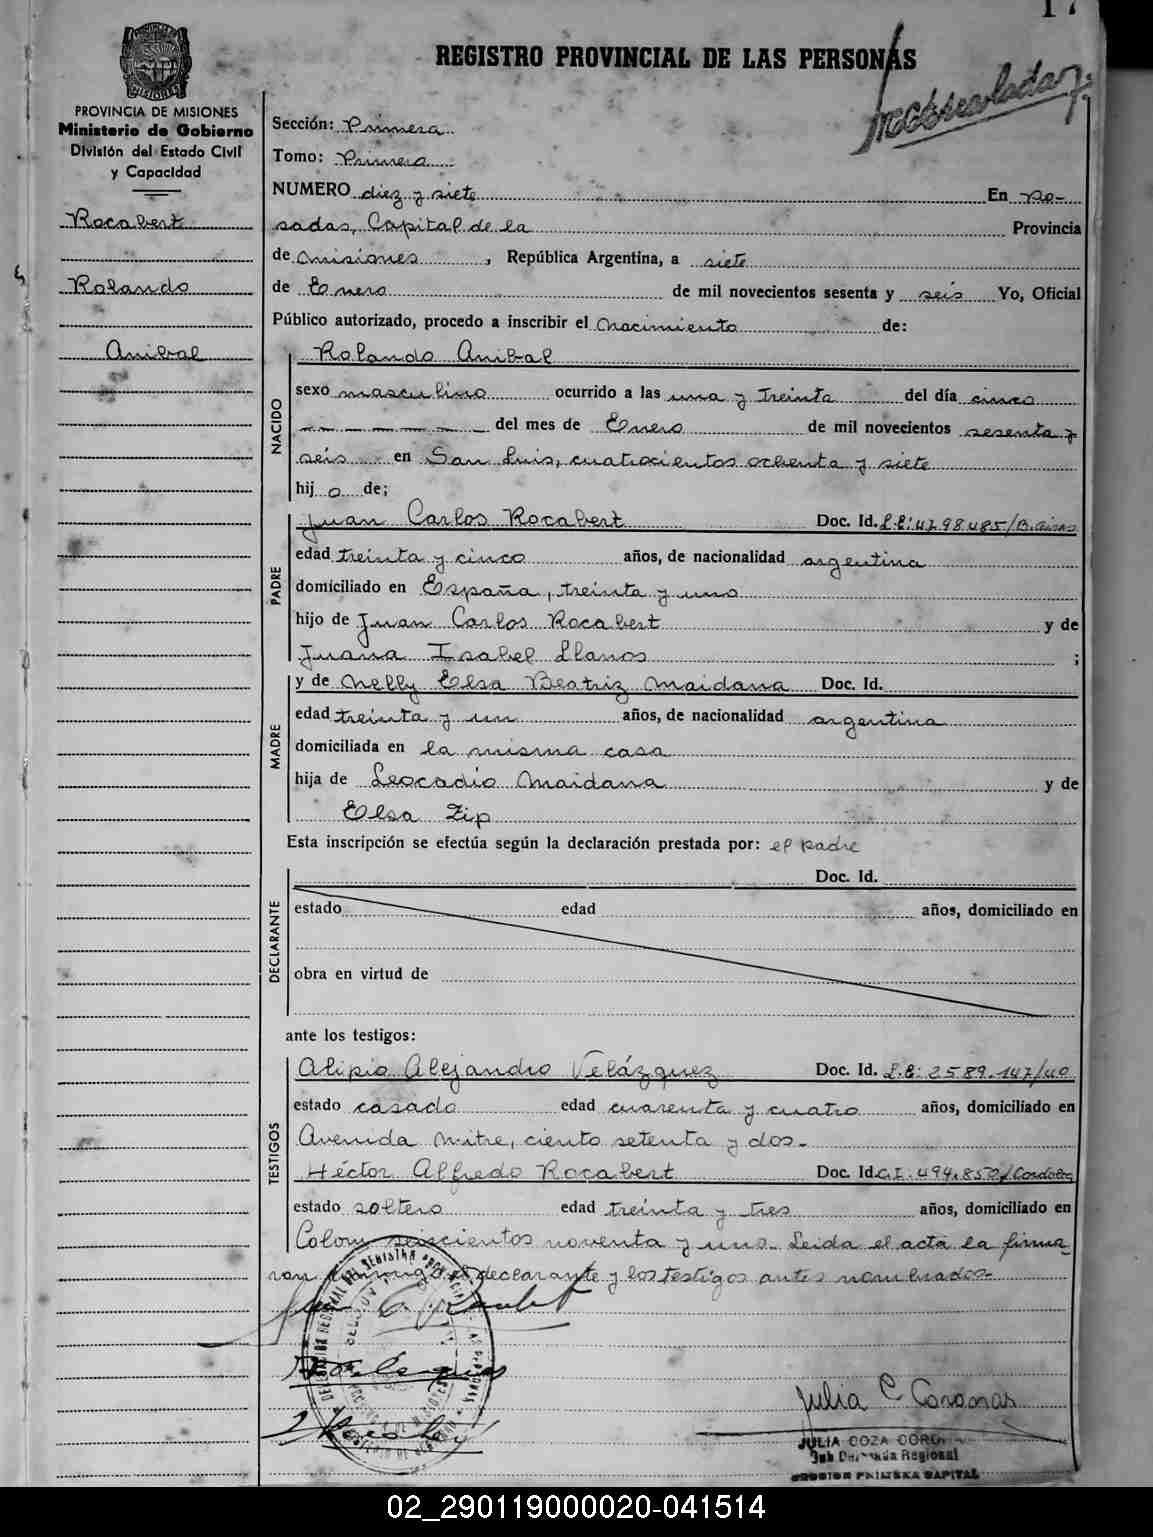 17
REGISTRO PROVINCIAL DE LAS PERSONAS
PROVINCIA DE MISIONES
Ministerio de Gobierno
División del Estado Civil
y Capacidad
Rocabert
Rolando
Anibal
Sección: Primera
Tomo: Primera
NUMERO diez y siete En Po-
sadas, Capital de la Provincia
de Misiones, República Argentina, a siete
de Enero de mil novecientos sesenta y seis Yo, Oficial
Público autorizado, procedo a inscribir el Nacimiento de:
NACIDO
Rolando Anibal
sexo masculino ocurrido a las una y treinta del día cinco
del mes de Enero de mil novecientos sesenta y
seis en San Luis, cuatrocientos ochenta y siete
hijo de;
PADRE
Juan Carlos Rocabert Doc. Id. L.E: 4.798.485/B. Aires
edad treinta y cinco años, de nacionalidad argentina
domiciliado en España, treinta y uno
hijo de Juan Carlos Rocabert y de
Juana Isabel Llanos ;
MADRE
y de Nelly Elsa Beatriz Maidana Doc. Id.
edad treinta y un años, de nacionalidad argentina
domiciliada en la misma casa
hija de Leocadio Maidana y de
Elsa Zip
Esta inscripción se efectúa según la declaración prestada por: el padre
DECLARANTE
Doc. Id.
estado edad años, domiciliado en
obra en virtud de
ante los testigos:
TESTIGOS
Alipio Alejandro Velázquez Doc. Id. L.E: 2589.147/40
estado casado edad cuarenta y cuatro años, domiciliado en
Avenida Mitre, ciento setenta y dos-
Héctor Alfredo Rocabert Doc. Id. C.I: 494.850/Cordoba
estado soltero edad treinta y tres años, domiciliado en
Colon, seiscientos noventa y uno. Leida el acta la firma
ron conmigo el declarante y los testigos antes nombrados-
Julia C Coronas
JULIA COZA
Regional
CAPITAL
02_290119000020-041514